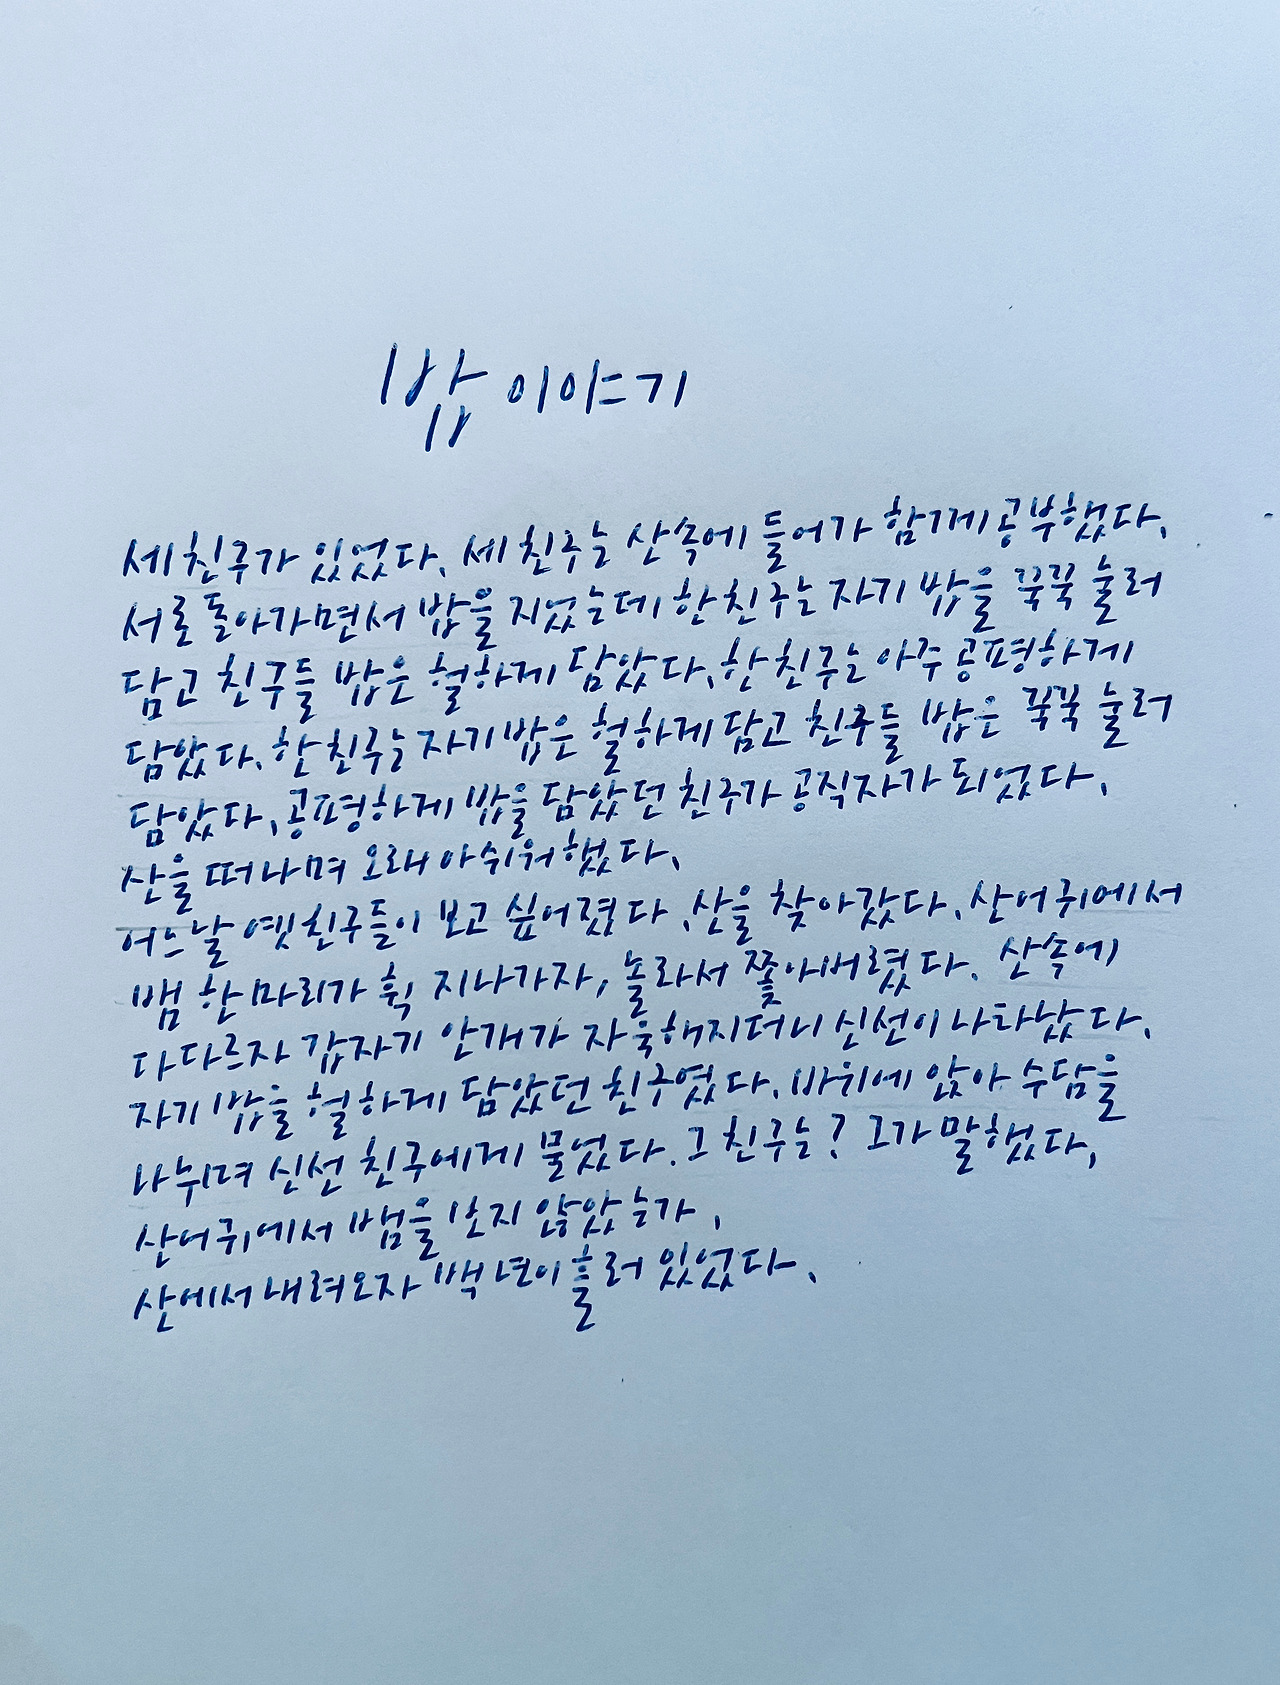 밥 이야기
세 친구가 있었다. 세 친구는 산속에 들어가 함께 공부했다.
서로 돌아가면서 밥을 지었는데 한 친구는 자기 밥을 꾹꾹 눌러
담고 친구들 밥은 헐하게 담았다. 한 친구는 아주 공평하게
담았다. 한 친구는 자기 밥은 헐하게 담고 친구들 밥은 꾹꾹 눌러
담았다. 공평하게 밥을 담았던 친구가 공직자가 되었다.
산을 떠나며 오래 아쉬워했다.
어느날 옛 친구들이 보고 싶어졌다. 산을 찾아갔다. 산어귀에서
뱀 한 마리가 휙 지나가자, 놀라서 쫓아버렸다. 산속에
다다르자 갑자기 안개가 자욱해지더니 신선이 나타났다.
자기 밥을 헐하게 담았던 친구였다. 바위에 앉아 수담을
나누며 신선 친구에게 물었다. 그 친구는? 그가 말했다,
산어귀에서 뱀을 보지 않았는가.
산에서 내려오자 백 년이 흘러 있었다.